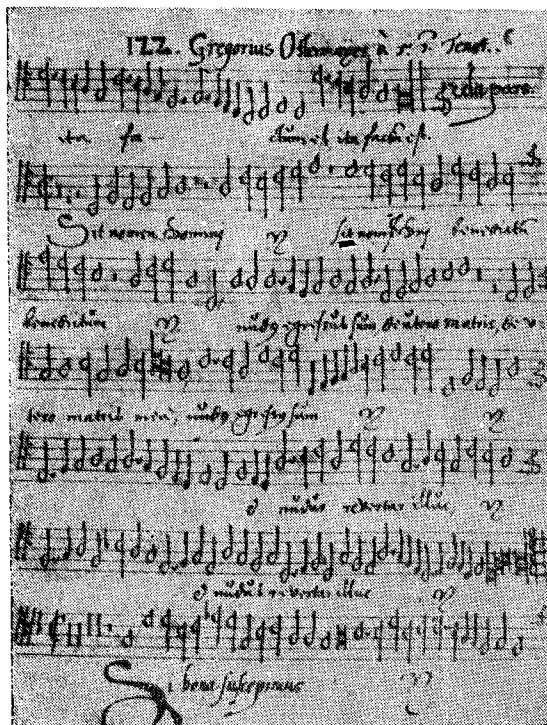 122. Gregorius Ostermayer à 5. Tenor.
2da pars
ita fa- ctum est ita factū est.
Sit nomen Domini sit nom Dñj benedictū
benedictum nudus egressus sum de utero matris, de u-
tero matris meæ, nudus egressus sum
& nudus revertar illuc
& nudus revertar illuc
Si bona suscepimus